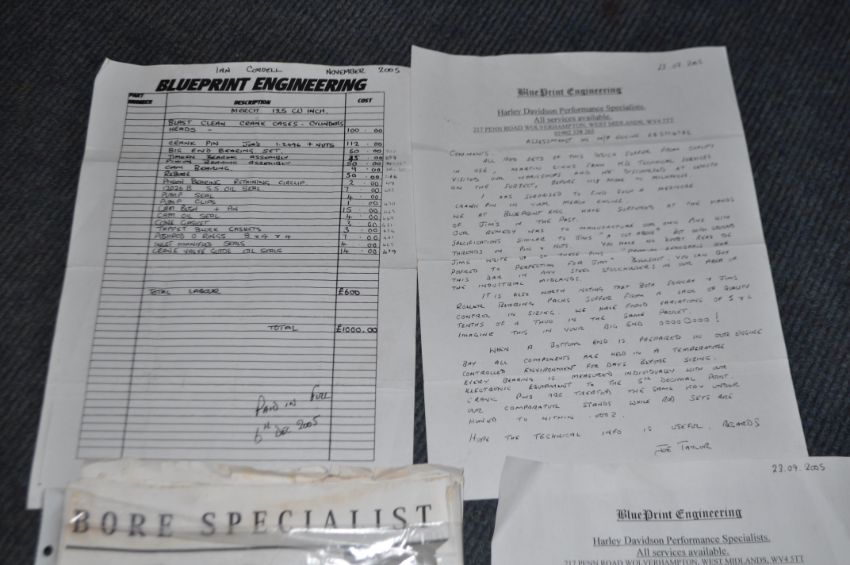 IAN CORDELL NOVEMBER 2005
BLUEPRINT ENGINEERING
PART NUMBER DESCRIPTION COST
MERCH 125 CU INCH.
BLAST CLEAN CRANK CASES - CYLINDERS
HEADS - 100 . 00
CRANK PIN JIMS 1.2496 + NUTS 112 . 00
BIG END BEARING SET. 60 . 00
TIMKEN BEARING ASSEMBLY
PINION BEARING ASSEMBLY
CAM BEARING 9 . 00
REBORE 50 . 00
PINION BEARING RETAINING CIRCLIP 2 . 00
12026 B S.S OIL SEAL 7
PUMP SEAL 4 . 00
PUMP CLIPS 1 . 00
CAM OIL SEAL 4 . 00
CONE GASKET 3 . 00
TAPPET BLOCK GASKETS 3 . 00
PUSHROD O RINGS 8 x 4 x 4 7 . 00
INLET MANIFOLD SEALS 4 . 00
CRANE VALVE GUIDE OIL SEALS 14 . 00
TOTAL LABOUR £600
TOTAL £1000.00
PAID IN FULL
6TH DEC 2005
23.09.2005
BluePrint Engineering
Harley Davidson Performance Specialists.
All services available.
217 PENN ROAD WOLVERHAMPTON, WEST MIDLANDS, WV4 5TT
01902 338 265
ASSESSMENT ON H/D ENGINE
COMMENTS.
IN USE. MARTIN CLEWS FROM M&S TECHNICAL SERVICES
VISITED OUR WORKSHOPS AND WE DISCUSSED AT LENGTH
ON THE SUBJECT, BEFORE HIS MOVE TO MILWAUKEE.
I WAS SURPRISED TO FIND SUCH A MEDIOCRE
CRANK PIN IN YOUR MERCH ENGINE.
WE AT BLUEPRINT ENG. HAVE SUFFERED AT THE HANDS
OF JIM'S IN THE PAST.
OUR REMEDY WAS TO MANUFACTURE OUR OWN PINS WITH
SPECIFICATIONS SIMILAR TO JIMS "A CUT ABOVE" BUT WITH GROUND
THREADS IN PIN + NUTS. YOU HAVE NO DOUBT READ THE
JIMS WRITE UP OF THESE PINS
THIS BAR IN ANY STEEL STOCKHOLDERS IN OUR AREA OF
THE INDUSTRIAL MIDLANDS.
IT IS ALSO WORTH NOTING THAT BOTH + JIMS
ROLLER BEARING PACKS SUFFER FROM A LACK OF QUALITY
CONTROL IN SIZING. WE HAVE FOUND VARIATIONS OF
TENTHS OF A THOU IN THE SAME PACKET.
IMAGINE THIS IN YOUR BIG END
WHEN A BOTTOM END IS PREPARED IN OUR ENGINE
BAY ALL COMPONENTS ARE HELD IN A TEMPERATURE
CONTROLLED ENVIRONMENT FOR DAYS BEFORE SIZING.
EVERY BEARING IS MEASURED INDIVIDUALLY WITH OUR
ELECTRONIC EQUIPMENT TO THE 5TH DECIMAL POINT.
CRANK PINS ARE TREATED THE SAME WAY UNDER
OUR COMPARATOR STANDS WHILE ROD SETS ARE
HONED TO WITHIN .0002.
HOPE THE TECHNICAL INFO IS USEFUL. REGARDS
JOE TAYLOR
BORE SPECIALIST
23.09.2005
BluePrint Engineering
Harley Davidson Performance Specialists.
All services available.
217 PENN ROAD WOLVERHAMPTON, WEST MIDLANDS, WV4 5TT